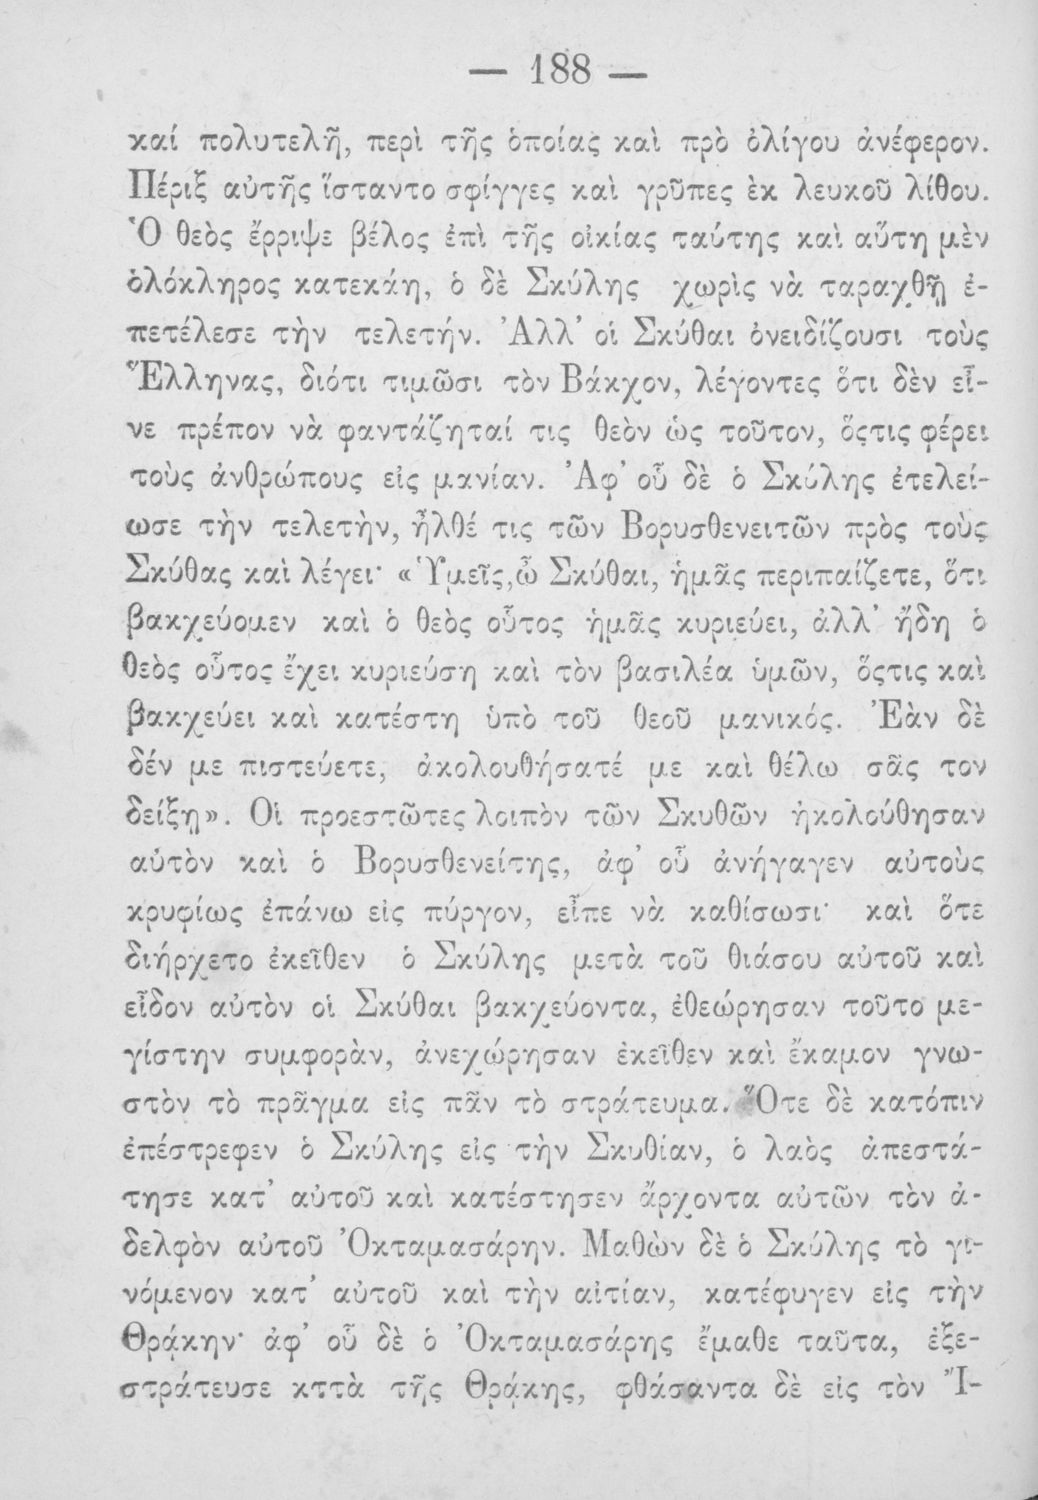 — 188 —
καί πολυτελῆ, περὶ τῆς ὁποίας καὶ πρὸ ὀλίγου ἀνέφερον.
Πέριξ αὐτῆς ἵσταντο σφίγγες καὶ γρῦπες ἐκ λευκοῦ λίθου.
Ὁ θεὸς ἔρριψε βέλος ἐπὶ τῆς οἰκίας ταύτης καὶ αὕτη μὲν
ὁλόκληρος κατεκάη, ὁ δὲ Σκύλης χωρὶς νὰ ταραχθῇ ἐ-
πετέλεσε τὴν τελετήν. Ἀλλ’ οἱ Σκύθαι ὀνειδίζουσι τοὺς
Ἕλληνας, διότι τιμῶσι τὸν Βάκχον, λέγοντες ὅτι δὲν εἶ-
νε πρέπον νὰ φαντάζηταί τις θεὸν ὡς τοῦτον, ὅςτις φέρει
τοὺς ἀνθρώπους εἰς μανίαν. Ἀφ’ οὗ δὲ ὁ Σκύλης ἐτελεί-
ωσε τὴν τελετὴν, ἦλθέ τις τῶν Βορυσθενειτῶν πρὸς τοὺς
Σκύθας καὶ λέγει· «Ὑμεῖς, ὦ Σκύθαι, ἡμᾶς περιπαίζετε, ὅτι
βακχεύομεν καὶ ὁ θεὸς οὗτος ἡμᾶς κυριεύει, ἀλλ’ ἤδη ὁ
θεὸς οὗτος ἔχει κυριεύση καὶ τὸν βασιλέα ὑμῶν, ὅςτις καὶ
βακχεύει καὶ κατέστη ὑπὸ τοῦ θεοῦ μανικός. Ἐὰν δὲ
δέν με πιστεύετε, ἀκολουθήσατέ με καὶ θέλω σᾶς τον
δείξῃ». Οἱ προεστῶτες λοιπὸν τῶν Σκυθῶν ἠκολούθησαν
αὐτὸν καὶ ὁ Βορυσθενείτης, ἀφ’ οὗ ἀνήγαγεν αὐτοὺς
κρυφίως ἐπάνω εἰς πύργον, εἶπε νὰ καθίσωσι· καὶ ὅτε
διήρχετο ἐκεῖθεν ὁ Σκύλης μετὰ τοῦ θιάσου αὐτοῦ καὶ
εἶδον αὐτὸν οἱ Σκύθαι βακχεύοντα, ἐθεώρησαν τοῦτο με-
γίστην συμφορὰν, ἀνεχώρησαν ἐκεῖθεν καὶ ἔκαμον γνω-
στὸν τὸ πρᾶγμα εἰς πᾶν τὸ στράτευμα. Ὅτε δὲ κατόπιν
ἐπέστρεφεν ὁ Σκύλης εἰς τὴν Σκυθίαν, ὁ λαὸς ἀπεστά-
τησε κατ’ αὐτοῦ καὶ κατέστησεν ἄρχοντα αὐτῶν τὸν ἀ-
δελφὸν αὐτοῦ Ὀκταμασάρην. Μαθὼν δὲ ὁ Σκύλης τὸ γι-
νόμενον κατ’ αὐτοῦ καὶ τὴν αἰτίαν, κατέφυγεν εἰς τὴν
Θράκην· ἀφ’ οὗ δὲ ὁ Ὀκταμασάρης ἔμαθε ταῦτα, ἐξε-
στράτευσε κττὰ τῆς Θράκης, φθάσαντα δὲ εἰς τὸν Ἴ-